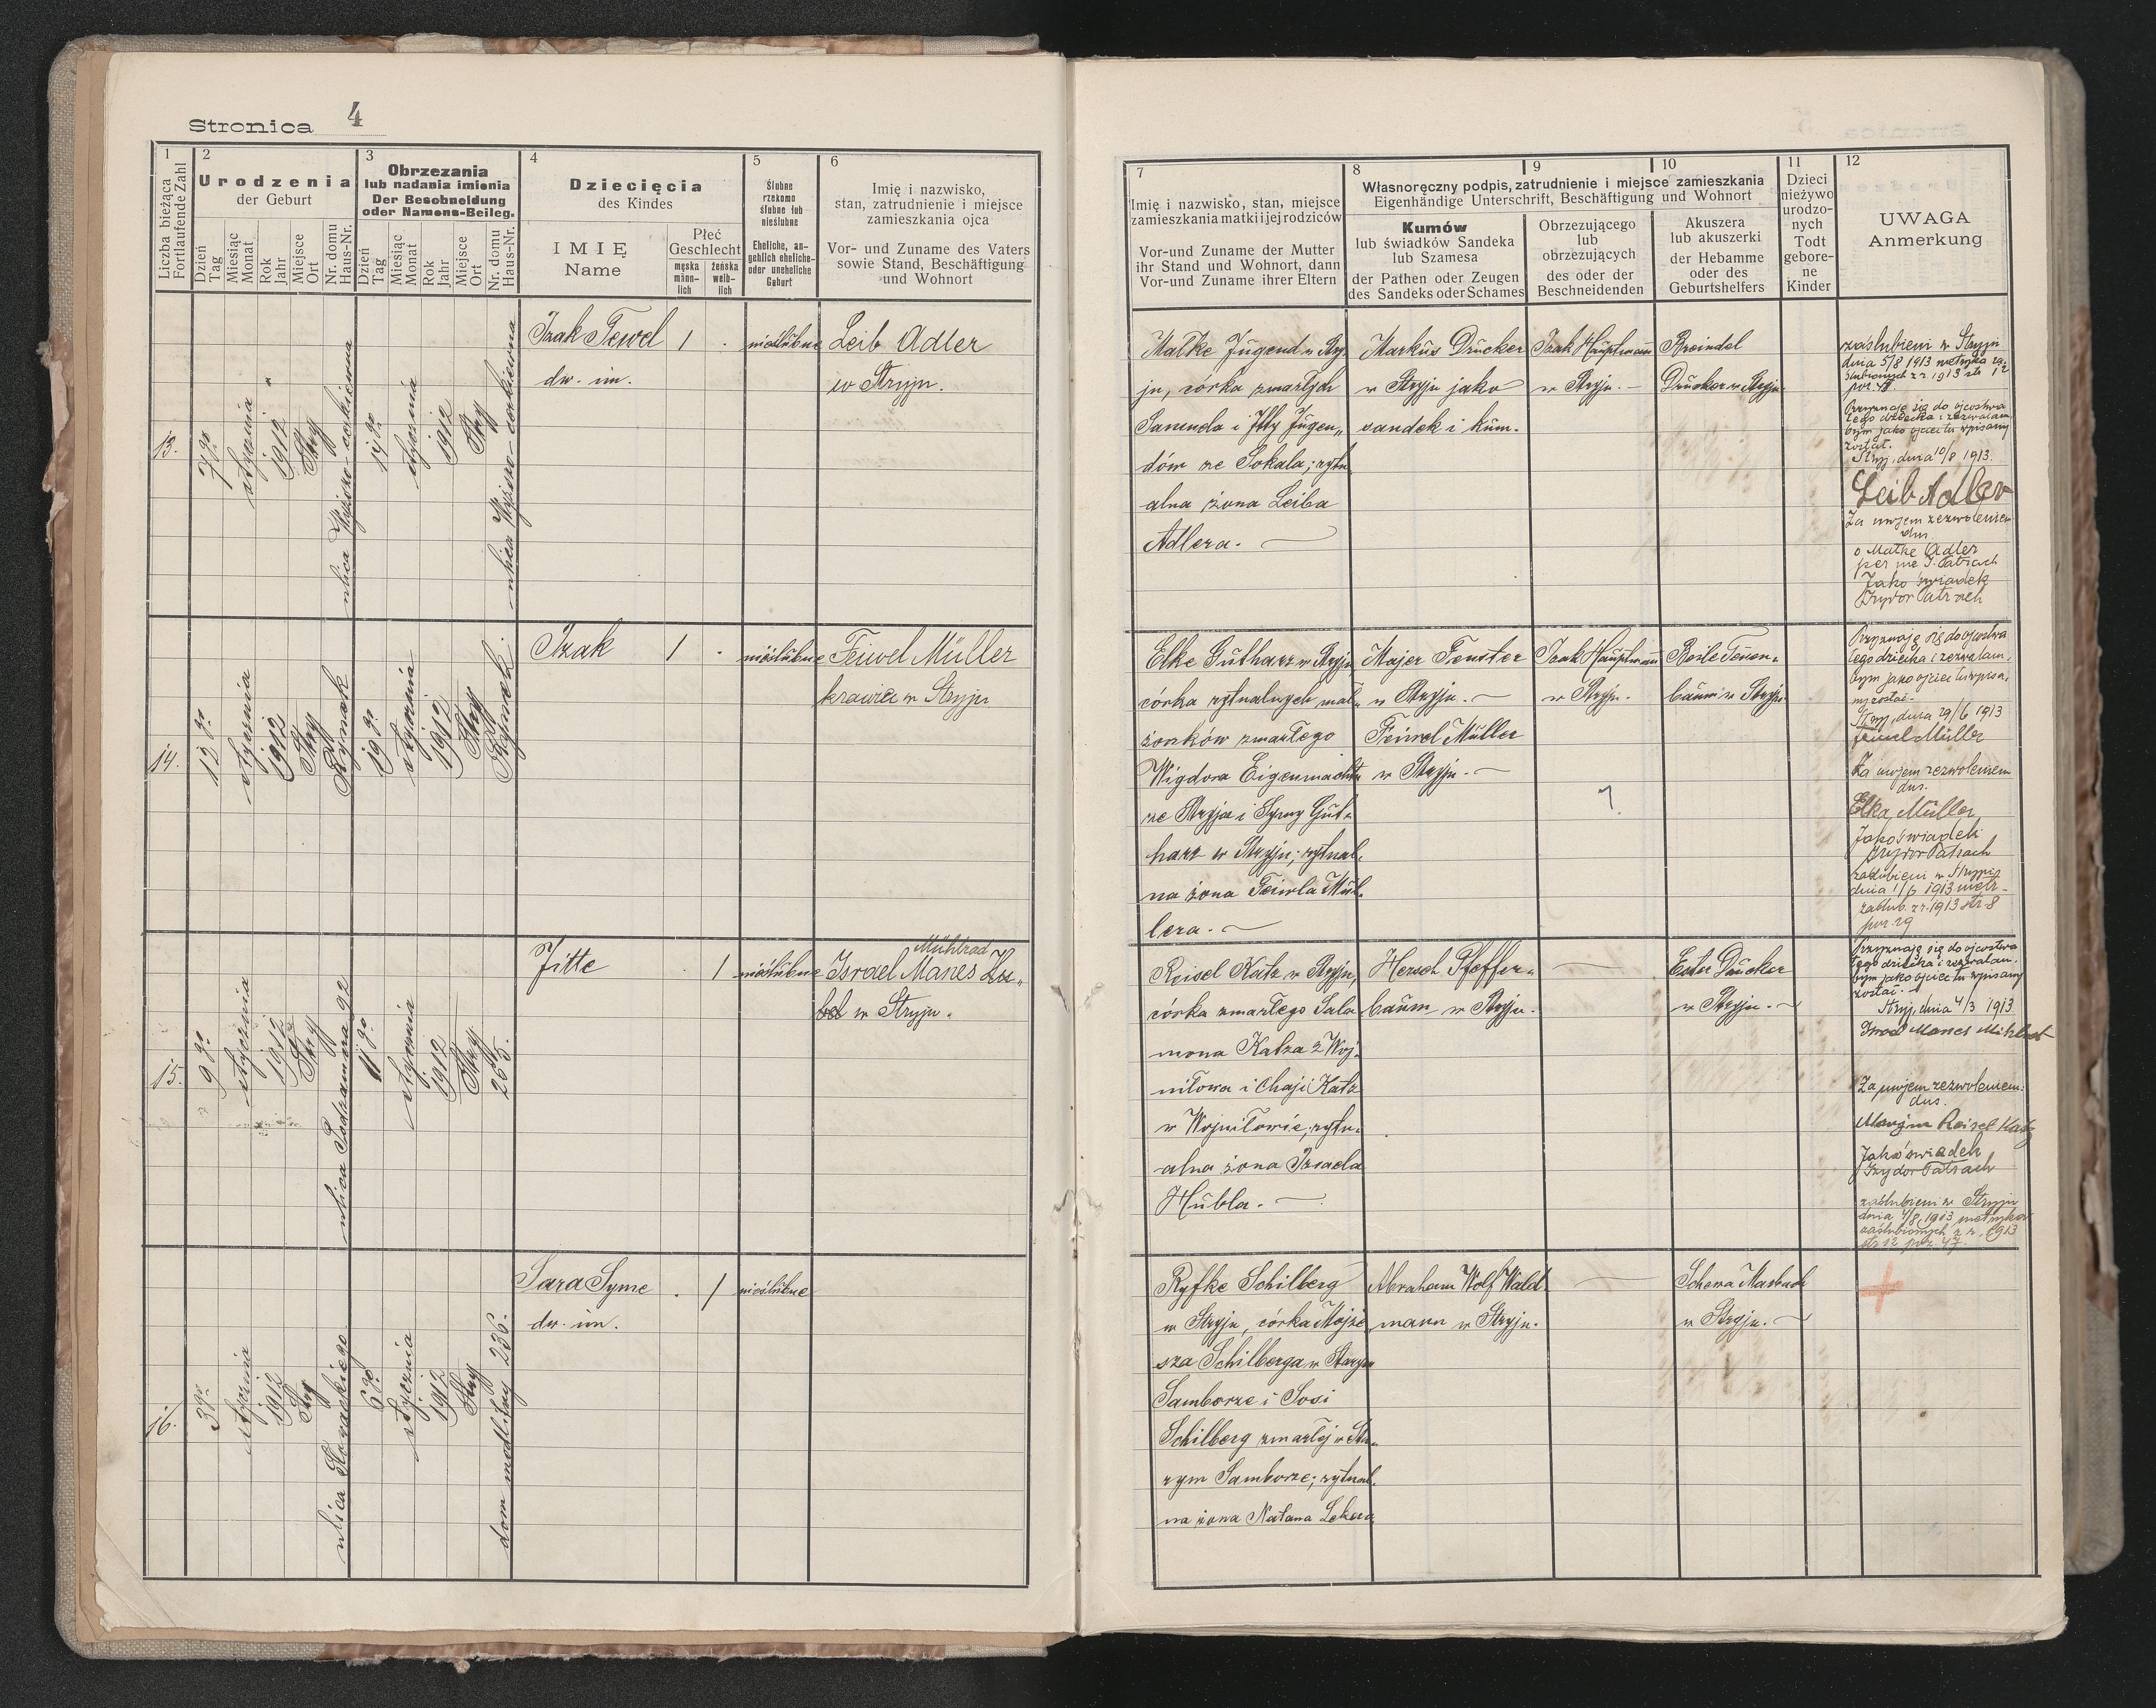 Stronica 4
1
Liczba bieżąca
Fortlaufende Zahl
2
Urodzenia
der Geburt
Dzień
Tag
Miesiąc
Monat
Rok
Jahr
Miejsce
Ort
Nr. domu
Haus-Nr.
3
Obrzezania
lub nadania imienia
Der Beschneidung
oder Namens-Beileg.
Dzień
Tag
Miesiąc
Monat
Rok
Jahr
Miejsce
Ort
Nr. domu
Haus-Nr.
4
Dziecięcia
des Kindes
IMIĘ
Name
Płeć
Geschlecht
męska
männ-
lich
żeńska
weib-
lich
5
Ślubne
rzekomo
ślubne lub
nieślubne
Eheliche, an-
geblich eheliche-
oder uneheliche
Geburt
6
Imię i nazwisko,
stan, zatrudnienie i miejsce
zamieszkania ojca
Vor- und Zuname des Vaters
sowie Stand, Beschäftigung
und Wohnort
7
Imię i nazwisko, stan, miejsce
zamieszkania matki i jej rodziców
Vor-und Zuname der Mutter
ihr Stand und Wohnort, dann
Vor-und Zuname ihrer Eltern
8
9
10
Własnoręczny podpis, zatrudnienie i miejsce zamieszkania
Eigenhändige Unterschrift, Beschäftigung und Wohnort
Kumów
lub świadków Sandeka
lub Szamesa
der Pathen oder Zeugen
des Sandeks oder Schames
Obrzezującego
lub
obrzezujących
des oder der
Beschneidenden
Akuszera
lub akuszerki
der Hebamme
oder des
Geburtshelfers
11
Dzieci
nieżywo
urodzo-
nych
Todt
gebore-
ne
Kinder
12
UWAGA
Anmerkung
13.
7go
stycznia
1912
Stryj
14go
stycznia
1912
Stryj
Izak Tewel
dw. im.
1
nieślubne
Leib Adler
w Stryju.
Malke Jugend w Stry
ju, córka zmarłych
Samuela i Itty Jugen„
dów ze Sokala; rytu
alna żona Leiba
Adlera.
Markus Drucker
w Stryju jako
sandek i kum.
Izak Hauptmann
w Stryju.
Breindel
Drucker w Stryju
zaślubieni w Stryju
dnia 5/8 1913 metryka za-
ślubionych z r. 1913 str 12
Przyznaję się do ojcostwa
tego dziecka i zezwalam
bym jako ojciec tu wpisany
został.
Stryj, dnia 10/8 1913.
Leib Adler
Za mojem zezwoleniem
dus.
o Malke Adler
per me I. Patrach
Jako świadek
Izydor Patrach
14.
12go
stycznia
1912
Stryj
Rynek
19go
stycznia
1912
Stryj
Izak
1
nieślubne
Feiwel Müller
krawiec w Stryju
Elke Gutharz w Stryju
córka rytualnych mał„
żonków zmarłego
Wigdora Eigenmachta
ze Stryja i Symy Gut„
harz w Stryju; rytual„
na żona Feiwla Mül„
lera.
Majer Fenster
w Stryju.
Feiwel Müller
w Stryju.
Izak Hauptmann
w Stryju.
Beile Tenen„
baum w Stryju
Przyznaję się do ojcostwa
tego dziecka i zezwalam,
bym jako ojciec tu wpisa„
ny został.
Stryj, dnia 29/6 1913
Feiwel Müller
Za mojem zezwoleniem
dus.
Elka Müller
Jako świadek
Izydor Patrach
zaślubieni w Stryju
dnia 1/6 1913 metr-
zaślub. z r. 1913 str. 8
poz. 29
15.
9go
stycznia
1912
Stryj
ulica Podzamcze 92
11go
stycznia
1912
Stryj
255.
Jitte
1
nieślubne
Mühlrad
Israel Manes Hu„
bel w Stryju.
Reisel Katz w Stryju,
córka zmarłego Sala
mona Katza z Woj„
niłowa i Chaji Katz
w Wojniłowie; rytu„
alna żona Izraela
Hubla.
Hersch Pfeffer„
baum w Stryju.
Ester Drucker
w Stryju.
Przyznaję się do ojcostwa
tego dziecka i zezwalam,
bym jako ojciec tu wpisany
został.
Stryj, dnia 4/3 1913
Za mojem zezwoleniem:
dus.
Reisel Katz
Jako świadek
Izydor Patrach
zaślubieni w Stryju
dnia 4/8 1913 metryka
zaślubionych z r. 1913
str 12 poz. 47.
16.
3go
stycznia
1912
Stryj
ulica Słowackiego
6go
stycznia
1912
Stryj
dom modlitwy 236.
Sara Syme
dw. im.
1
nieślubne
Ryfke Schilberg
w Stryju, córka Mojże
sza Schilberga w Starym
Samborze i Sosi
Schilberg zmarłej w Sta„
rym Samborze; rytual„
na żona Natana Lekera
Abraham Wolf Wald„
mann w Stryju.
Schewa Masbach
w Stryju.